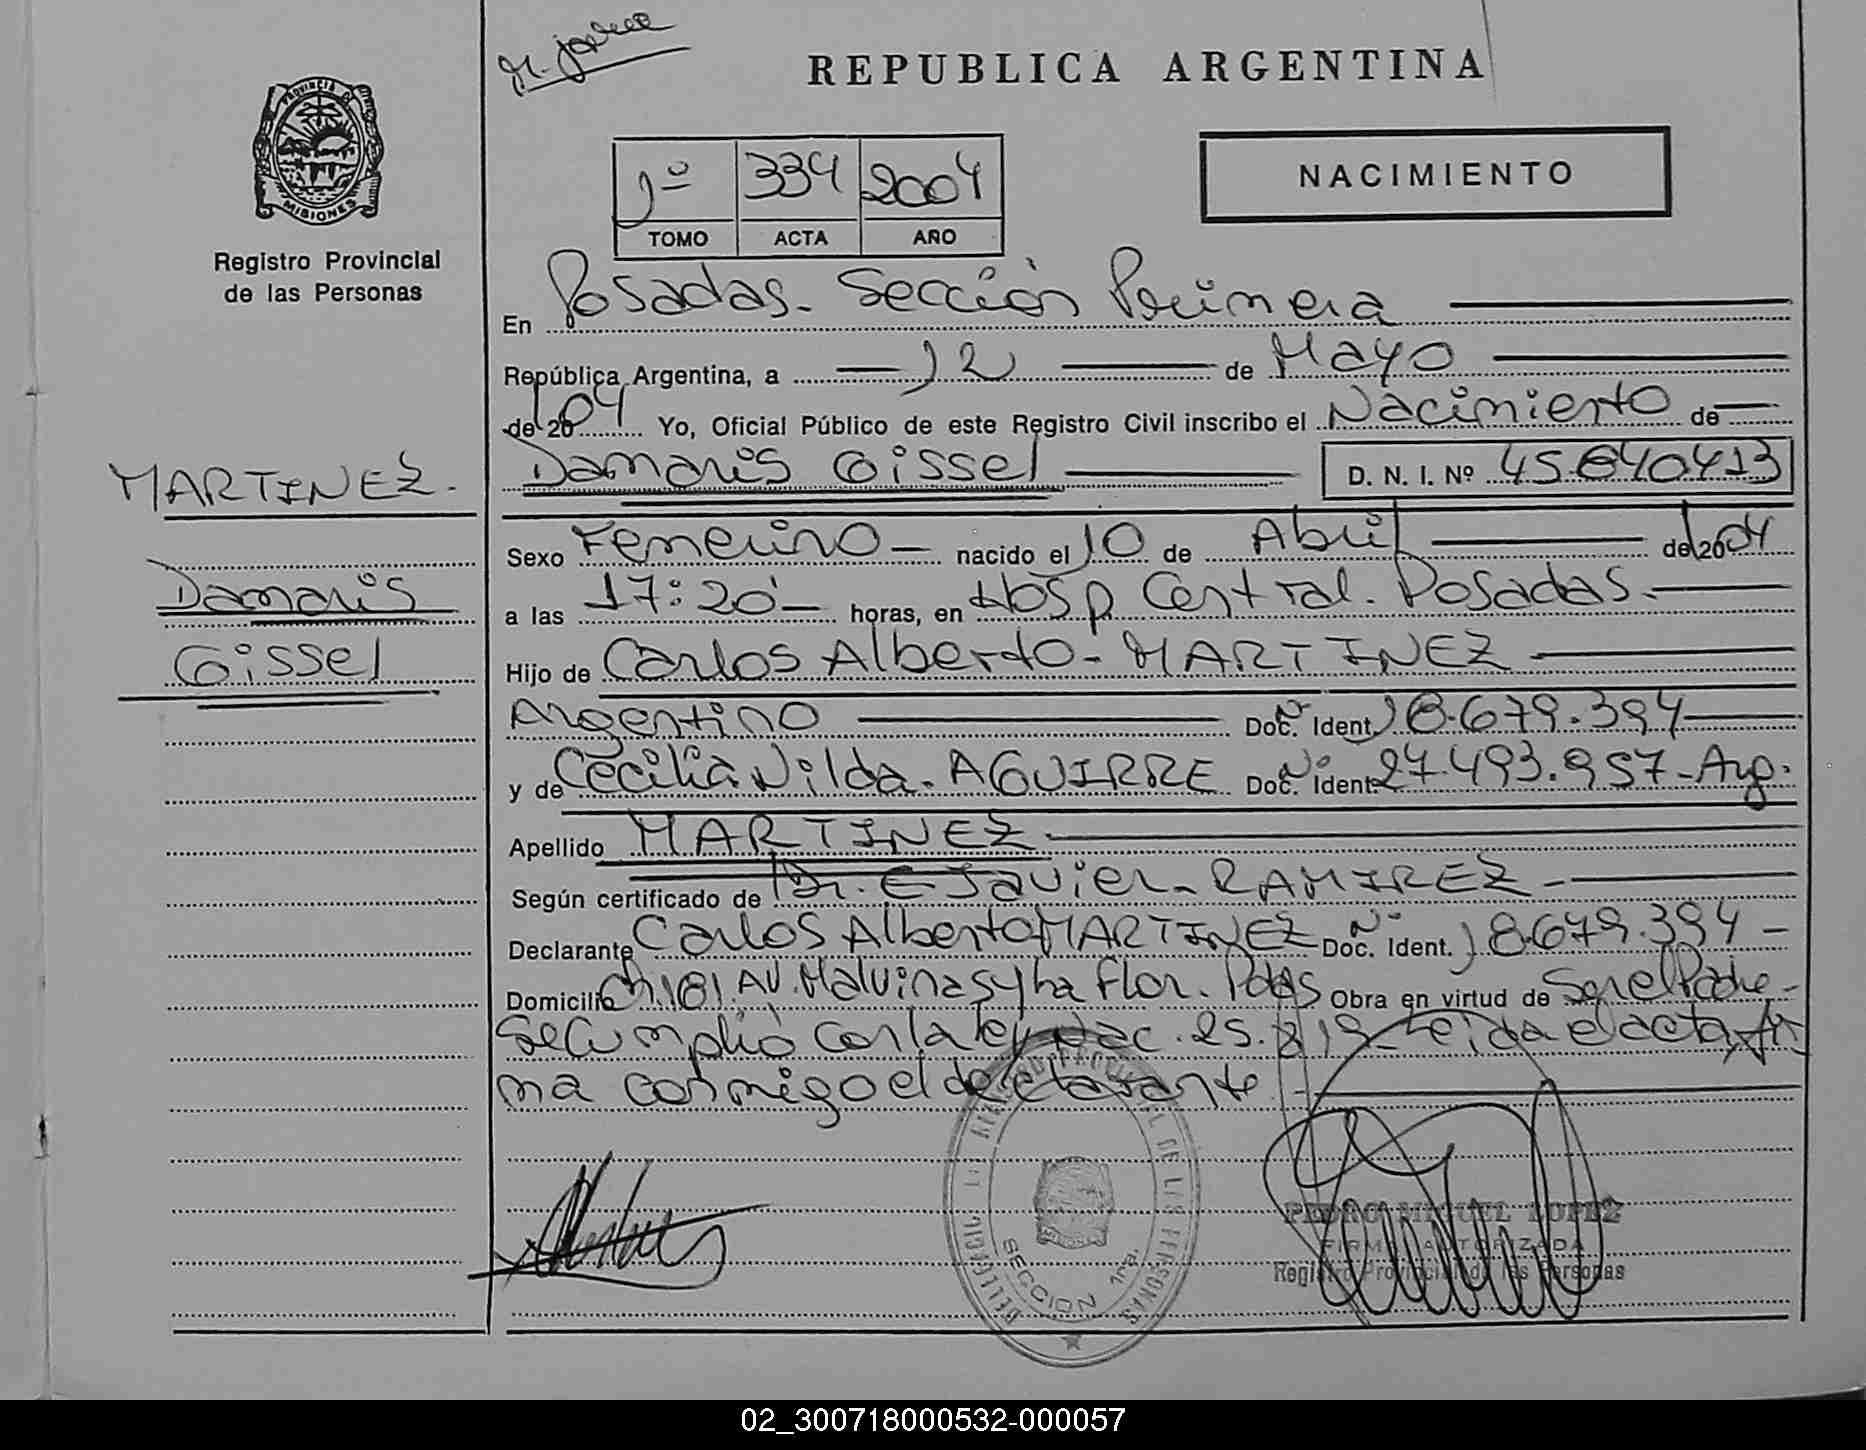 REPUBLICA ARGENTINA
PROVINCIA DE
MISIONES
Registro Provincial
de las Personas
1º 334 2004
TOMO ACTA AÑO
NACIMIENTO
En Posadas - Sección Primera
República Argentina, a 12 de Mayo
de 2004 Yo, Oficial Público de este Registro Civil inscribo el Nacimiento de
Damaris Gissel D. N. I. Nº 45.640.413
MARTINEZ.
Damaris
Gissel
Sexo Femenino nacido el 10 de Abril de 2004
a las 17:20 horas, en Hosp. Central. Posadas
Hijo de Carlos Alberto - MARTINEZ
Argentino Doc. Nº Ident. 18.679.394
y de Cecilia Nilda - AGUIRRE Doc. Nº Ident. 27.493.957 - Arg.
Apellido MARTINEZ
Según certificado de Dr. E Javier - RAMIREZ
Declarante Carlos Alberto MARTINEZ Doc. Nº Ident. 18.679.394
Domicilio Ch. 181. AV. Malvinas y La Flor. Pdas Obra en virtud de Ser el Padre -
Se cumplió con la ley Nac. 25.819 - Leida el acta, fir
ma conmigo el declarante.
REGISTRO PROVINCIAL DE LAS PERSONAS
SECCION 1ra.
PEDRO MIGUEL LOPEZ
FIRMA AUTORIZADA
Registro Provincial de las Personas
02_300718000532-000057